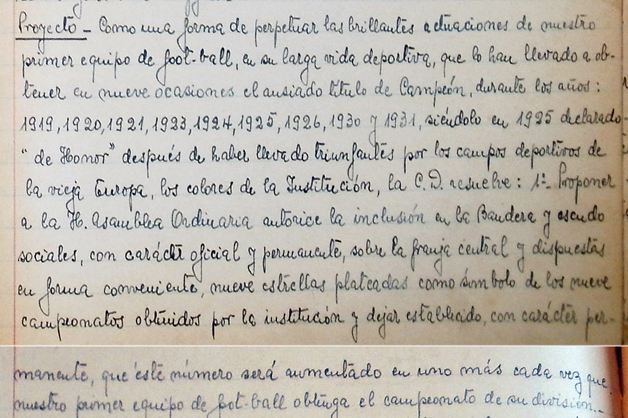 Proyecto - Como una forma de perpetuar las brillantes actuaciones de nuestro
primer equipo de foot-ball, en su larga vida deportiva, que lo han llevado a ob-
tener en nueve ocasiones el ansiado título de Campeón, durante los años:
1919, 1920, 1921, 1923, 1924, 1925, 1926, 1930 y 1931, siéndolo en 1925 declarado
"de Honor" después de haber llevado triunfantes por los campos deportivos de
la vieja Europa, los colores de la Institución, la C.D. resuelve: 1º Proponer
a la H. Asamblea Ordinaria autorice la inclusión en la Bandera y escudo
sociales, con carácter oficial y permanente, sobre la franja central y dispuestas
en forma conveniente, nueve estrellas plateadas como símbolo de los nueve
campeonatos obtenidos por la institución y dejar establecido, con carácter per-
manente, que éste número será aumentado en uno más cada vez que
nuestro primer equipo de foot-ball obtenga el campeonato de su división.-